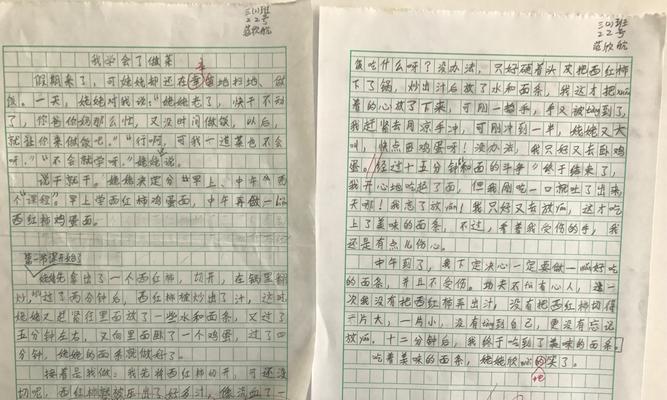 三(1)班
22号
我学会了做菜
假期来了,可姥姥却还在辛苦地扫地、做
饭。一天,姥姥对我说:“姥姥老了,快干不动
了,你爸你妈那么忙,又没时间做饭,以后,
就让你来做饭吧。”“行啊,可我一道菜也不会
呀。”“不会就学呀。”姥姥说。
说干就干。姥姥决定分“早上、中午”两
个“课程”,早上学西红柿鸡蛋面,中午再做一
西红柿鸡蛋面。
第一节课开始了
姥姥拿出了一个西红柿,切开,在锅里翻
炒,过了两分钟后,西红柿被炒出了汁,这时
姥姥又赶紧往里面放了一些水和面条,又过了
五分钟左右,又向里面卧了一个鸡蛋,过了四
分钟,姥姥的面条就做好了。
接着是我做:我先将西红柿切开,可还没
切呢,西红柿就被压出了好多汁,像流血了一
三(1)班
22号
饭吃什么呀?没办法,只好硬着头皮把西红柿
下了锅,炒出汁后放了水和面条,我这才把
着的心放了下来,可刚一撒手,手又被tàng到了,
我赶紧去用凉手冲,可刚冲到一半,姥姥又大
叫,快点卧鸡蛋呀!没办法,我只好又去卧鸡
蛋。经过十五分钟“和面的斗争”终于结束了,
我开心地吃起了面,但我刚吃一口就吐了出来,
天哪!我忘了放盐!我只好又去放盐,这才吃
上了美味的面条,不过,看着我受伤的手,我
还是有点儿伤心。
中午到了,我下定决心一定要做一碗好吃
的面条,并且不受伤。功夫不负有心人,这一
次我没有把西红柿弄出汁,没有把西红柿切得
一片大,一片小,没有tàng到自己,更没有忘记
放盐。十二分钟后,我终于吃到了美味的面条。
吃着美味的面条,姥姥欣wèi的笑了。
地